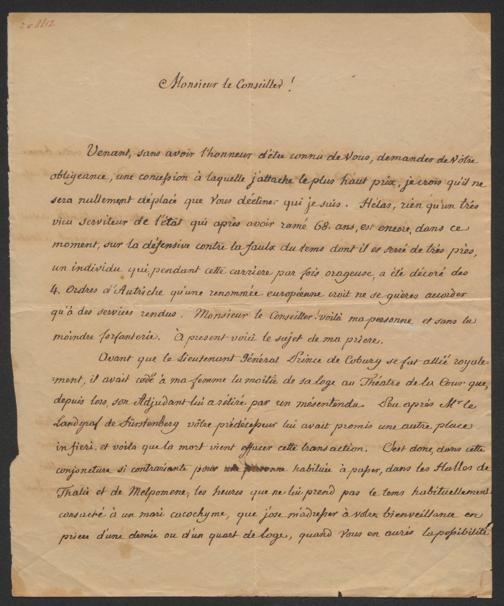 Monsieur le Conseiller!
Venant, sans avoir l'honneur d'être connu de Vous, demander de Vôtre
obligeance, une concession à laquelle j'attache le plus haut prix, je crois qu'il ne
sera nullement déplacé que Vous décliner qui je suis. Hélas, rien qu'un très
vieu serviteur de l'état qui après avoir ramé 68. ans, est encore, dans ce
moment, sur la défensive contre la faulx du tems dont il est serré de très près,
un individu qui, pendant cette carrière par fois orageuse, a été décoré des
4. Ordres d'Autriche qu'une renommée européenne croit ne se guères accorder
qu'à des services rendus. Monsieur le Conseiller voilà ma personne, et sans la
moindre forfanterie. À present voici le sujet de ma prière.
Avant que le Lieutenant Général Prince de Coburg se fut allié royale-
ment, il avait cédé à ma femme la moitié de sa loge au Théatre de la Cour que,
depuis lors, son Adjudant lui a rétiré par un mésentendu. Peu après Mr. le
Landgraf de Fürstenberg vôtre prédécesseur lui avait promis une autre place
in fieri, et voilà que la mort vient effacer cette transaction. C'est donc, dans cette
conjoncture si contrariante pour habituée à passer, dans les Halles de
Thalie et de Melpomene, les heures que ne lui prend pas le tems habituellement
consacré à un mari cacochyme, que j'ose m'adresser à vôtre bienveillance en
prière d'une demie ou d'un quart de loge, quand Vous en aurés la possibilité